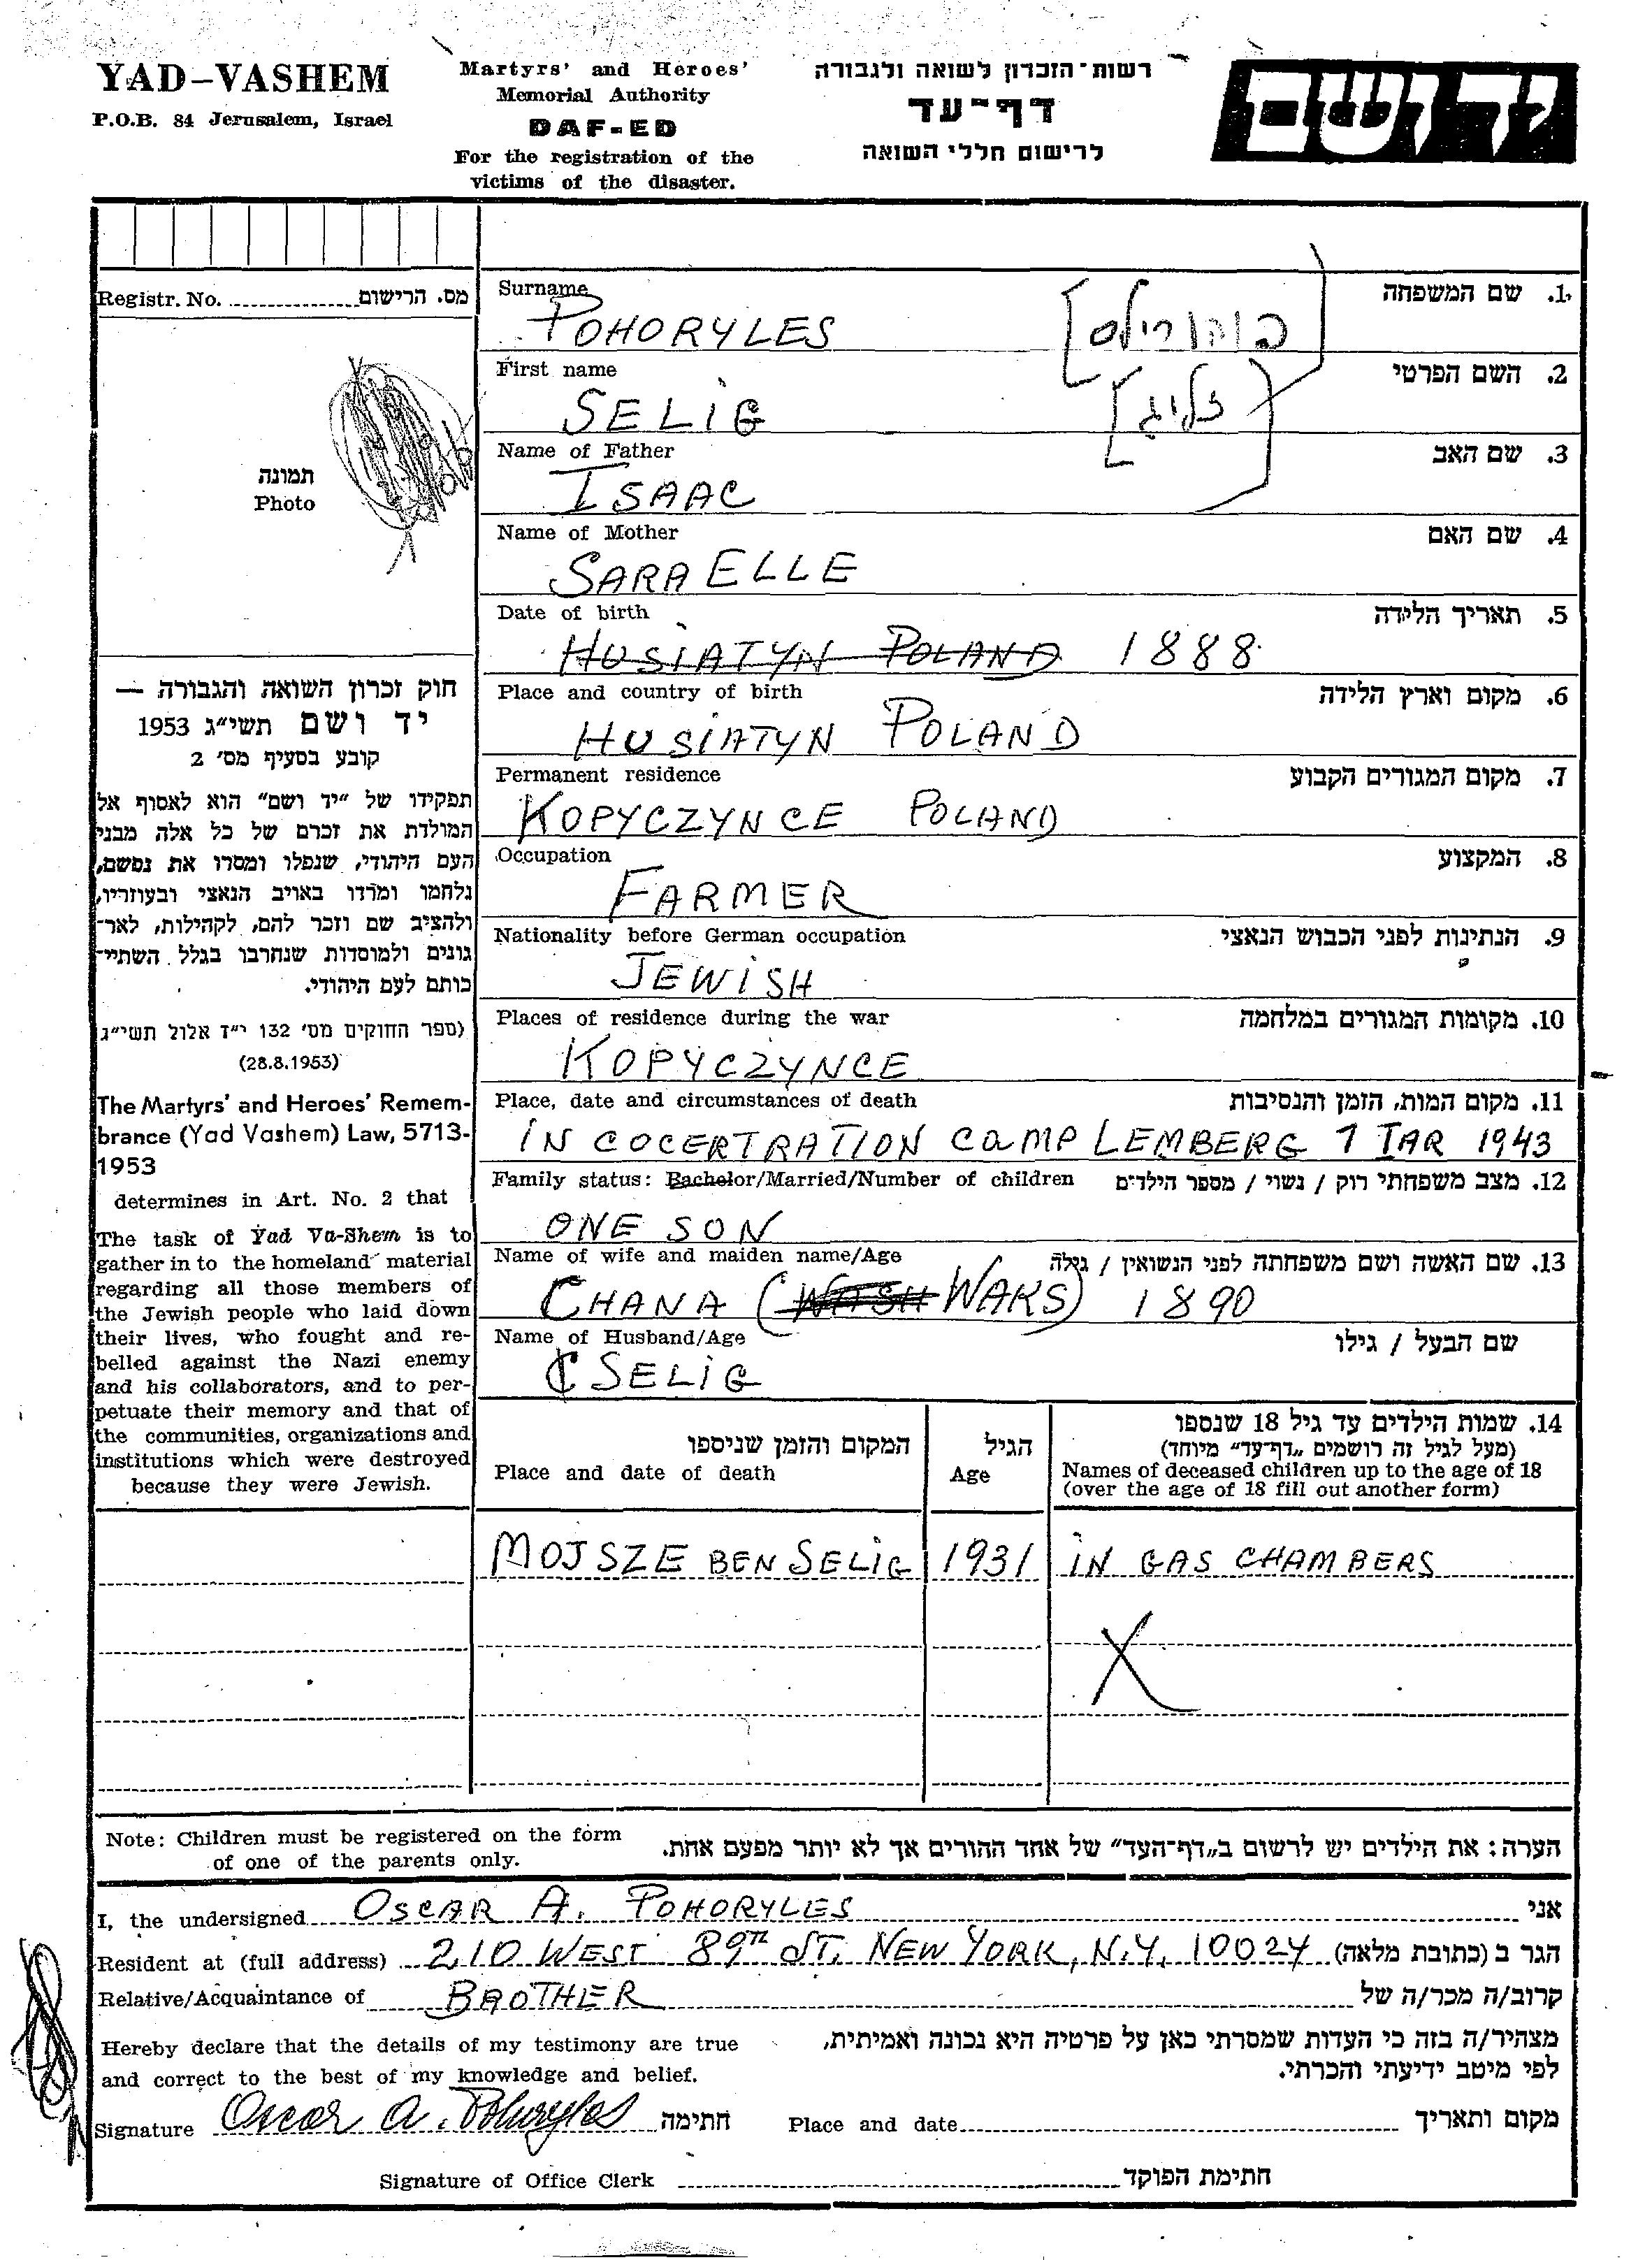 YAD-VASHEM
P.O.B. 84 Jerusalem, Israel
Martyrs' and Heroes'
Memorial Authority
DAF-ED
For the registration of the
victims of the disaster.
רשות-הזכרון לשואה ולגבורה
דף-עד
לרישום חללי השואה
ידושם
Registr. No. מס. הרישום
תמונה
Photo
חוק זכרון השואה והגבורה —
יד ושם תשי״ג 1953
קובע בסעיף מס׳ 2
תפקידו של ״יד ושם״ הוא לאסוף אל
המולדת את זכרם של כל אלה מבני
העם היהודי, שנפלו ומסרו את נפשם,
נלחמו ומרדו באויב הנאצי ובעוזריו,
ולהציב שם וזכר להם, לקהילות, לאר-
גונים ולמוסדות שנחרבו בגלל השתיי-
כותם לעם היהודי.
(ספר החוקים מס׳ 132 י״ז אלול תשי״ג
(28.8.1953)
The Martyrs' and Heroes' Remem-
brance (Yad Vashem) Law, 5713-
1953
determines in Art. No. 2 that
The task of Yad Va-Shem is to
gather in to the homeland material
regarding all those members of
the Jewish people who laid down
their lives, who fought and re-
belled against the Nazi enemy
and his collaborators, and to per-
petuate their memory and that of
the communities, organizations and
institutions which were destroyed
because they were Jewish.
Surname 1. שם המשפחה
POHORYLES [פוהורילס]
First name 2. השם הפרטי
SELIG [זליג]
Name of Father 3. שם האב
ISAAC
Name of Mother 4. שם האם
SARA ELLE
Date of birth 5. תאריך הלידה
HUSIATYN POLAND 1888
Place and country of birth 6. מקום וארץ הלידה
HUSIATYN POLAND
Permanent residence 7. מקום המגורים הקבוע
KOPYCZYNCE POLAND
Occupation 8. המקצוע
FARMER
Nationality before German occupation 9. הנתינות לפני הכבוש הנאצי
JEWISH
Places of residence during the war 10. מקומות המגורים במלחמה
KOPYCZYNCE
Place, date and circumstances of death 11. מקום המות, הזמן והנסיבות
IN COCERTRATION CAMP LEMBERG 7 IAR 1943
Family status: Bachelor/Married/Number of children 12. מצב משפחתי רוק / נשוי / מספר הילדים
ONE SON
Name of wife and maiden name/Age 13. שם האשה ושם משפחתה לפני הנשואין / גילה
CHANA (WASH WAKS) 1890
Name of Husband/Age שם הבעל / גילו
SELIG
המקום והזמן שניספו
Place and date of death
הגיל
Age
14. שמות הילדים עד גיל 18 שנספו
(מעל לגיל זה רושמים ״דף-עד״ מיוחד)
Names of deceased children up to the age of 18
(over the age of 18 fill out another form)
MOJSZE BEN SELIG 1931 IN GAS CHAMBERS
X
Note: Children must be registered on the form
of one of the parents only.
הערה: את הילדים יש לרשום ב״דף-העד״ של אחד ההורים אך לא יותר מפעם אחת.
I, the undersigned OSCAR A. POHORYLES אני
Resident at (full address) 210 WEST 89TH ST. NEW YORK, N.Y. 10024 הגר ב (כתובת מלאה)
Relative/Acquaintance of BROTHER קרוב/ה מכר/ה של
Hereby declare that the details of my testimony are true
and correct to the best of my knowledge and belief.
מצהיר/ה בזה כי העדות שמסרתי כאן על פרטיה היא נכונה ואמיתית,
לפי מיטב ידיעתי והכרתי.
Signature Oscar A. Pohoryles חתימה Place and date מקום ותאריך
Signature of Office Clerk חתימת הפוקד